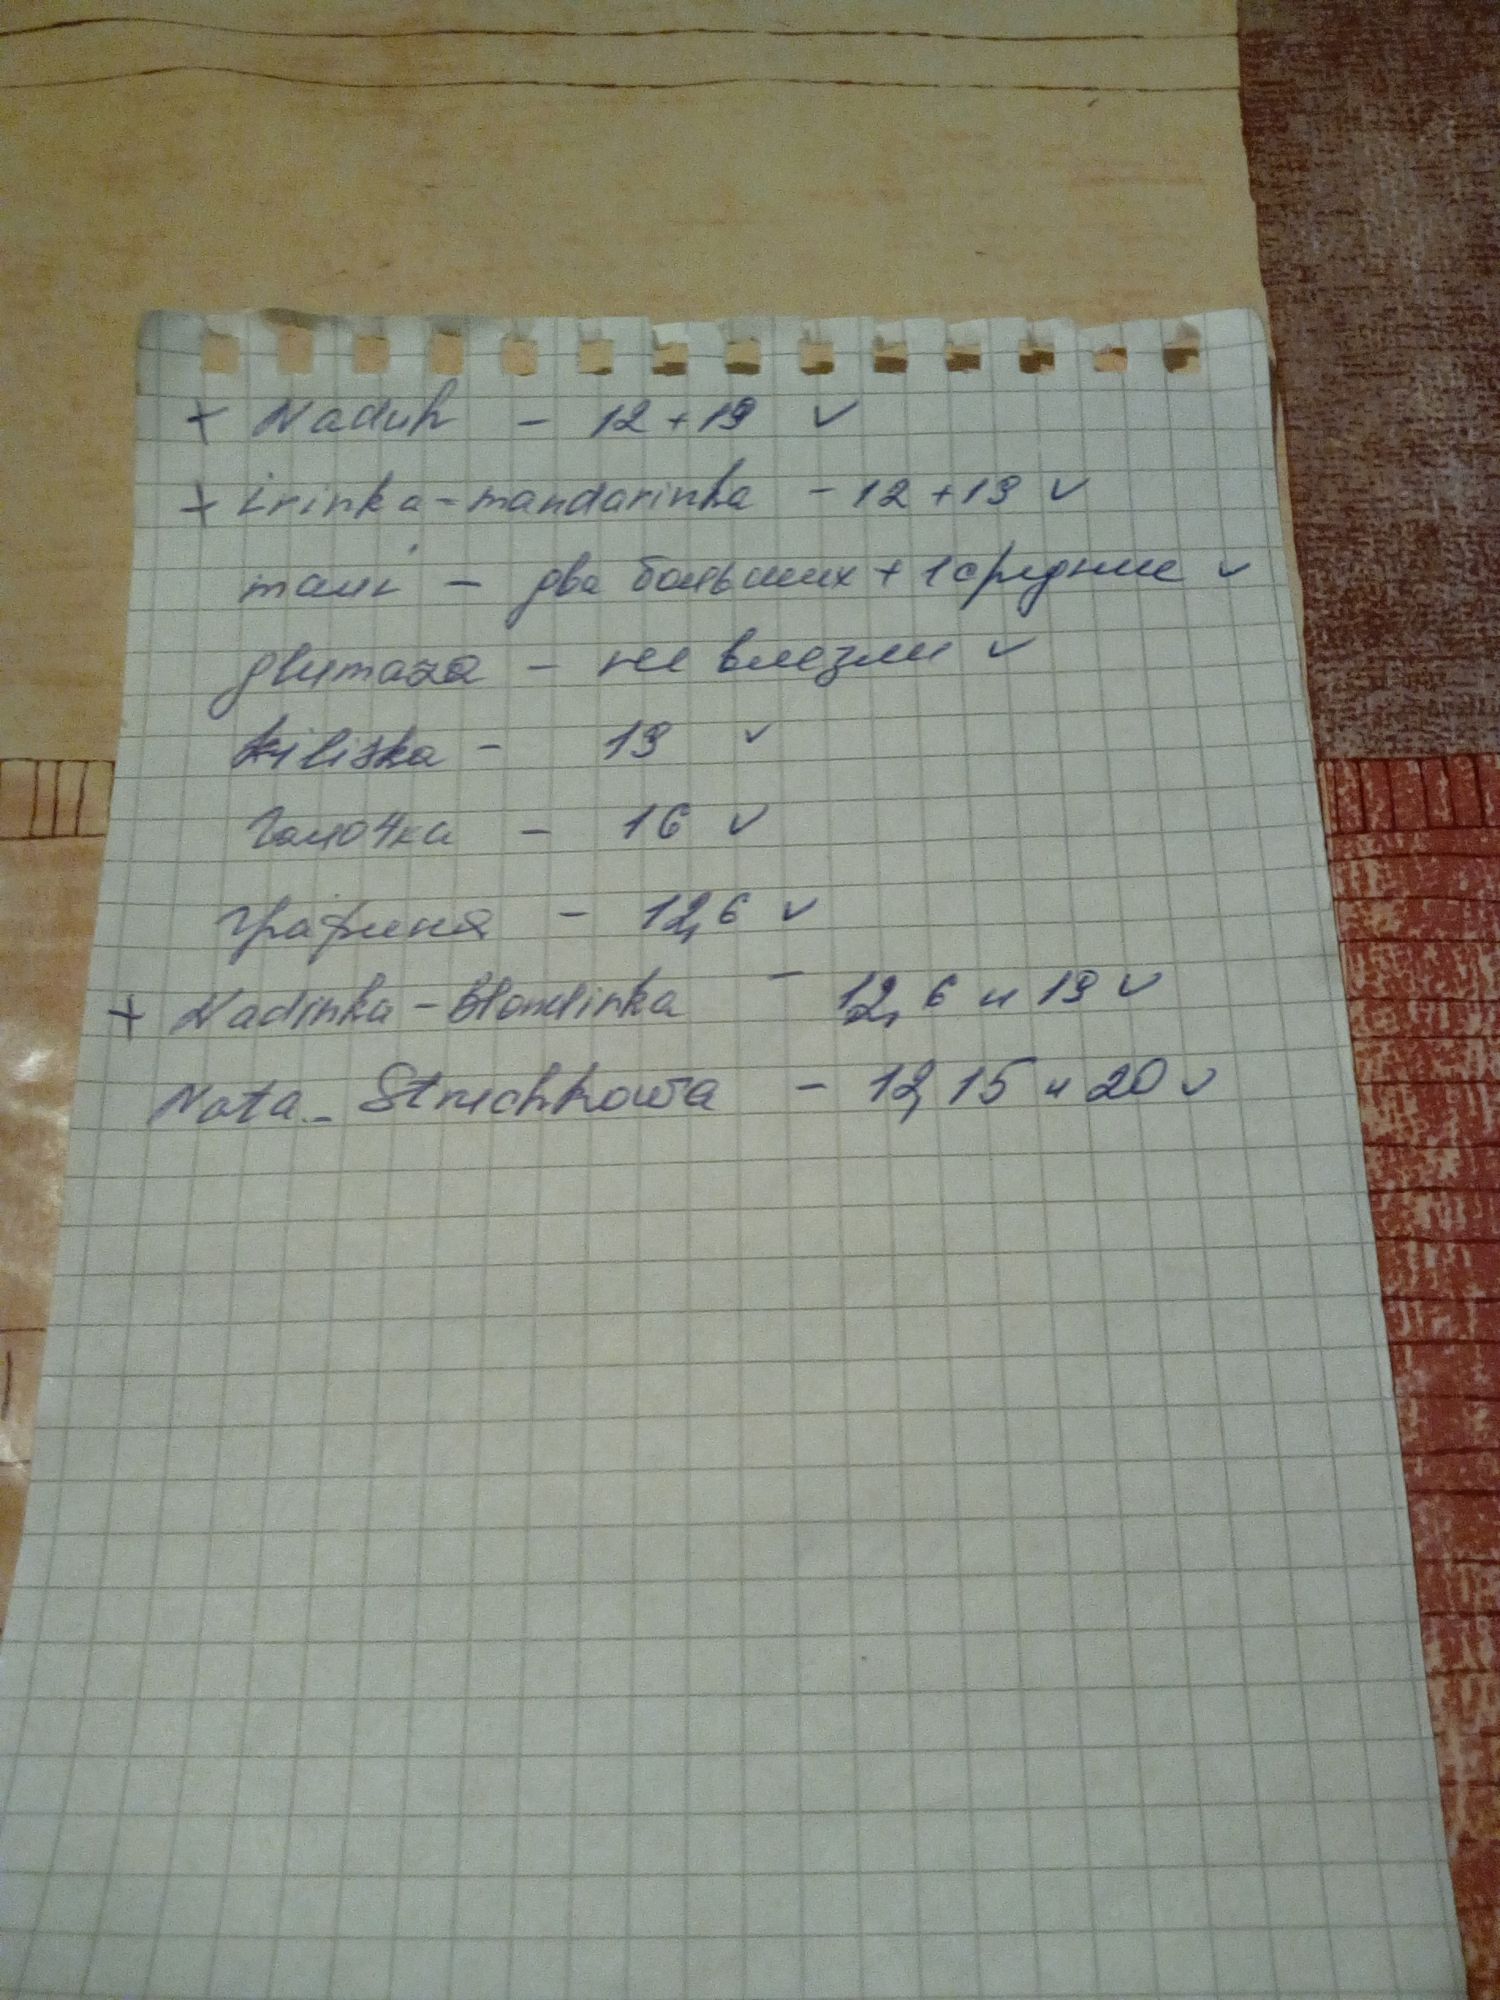 + Naduh - 12 + 19 v
+ irinka-mandarinka - 12 + 19 v
mani - два больших + 1 средние v
glumaza - не влезли v
kiliska - 19 v
Галочка - 16 v
графиня - 12,6 v
+ Nadinka-blondinka - 12,6 и 19 v
Nata_Struchkowa - 12,15 и 20 v